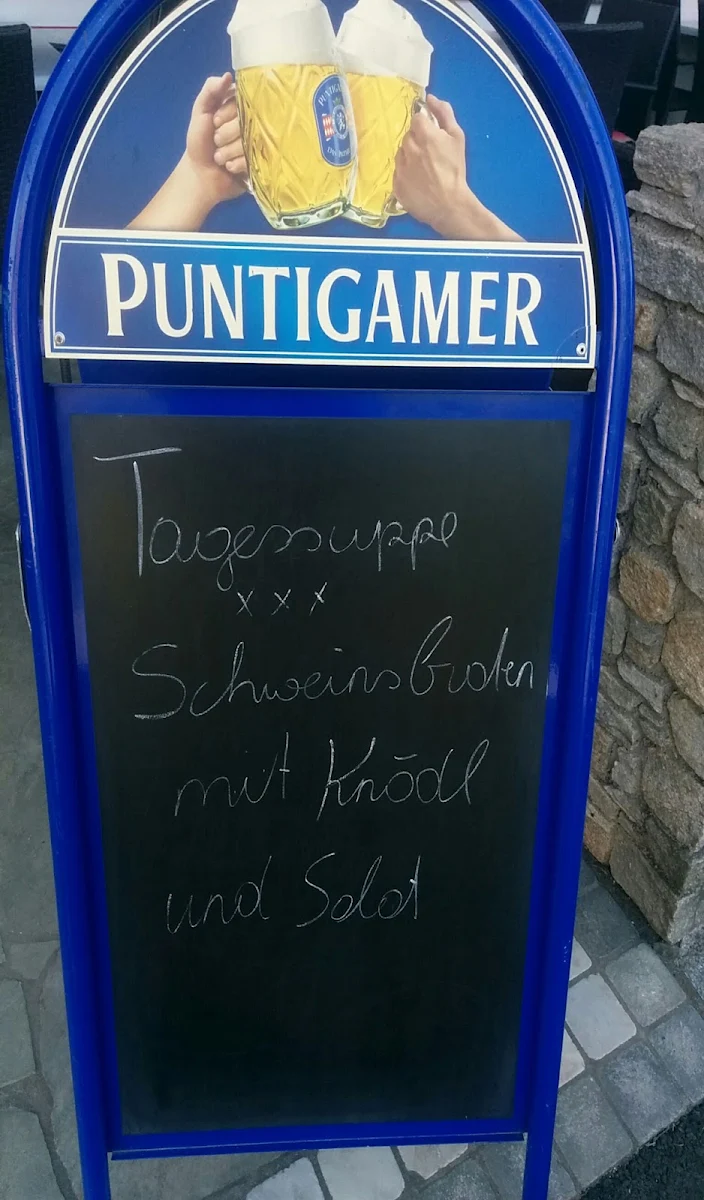 PUNTIGAMER
Tagessuppe
x x x
Schweinsbraten
mit Knödl
und Salat